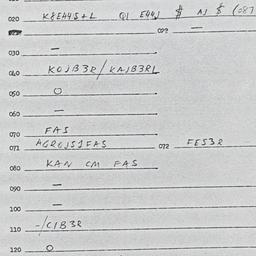 020 K8E445+L Q1 E44J $ AJ $ (087
022 —
030 —
040 KOJB3R/KAJB3RL
050 O
060 —
070 FAS
071 AGROJS1FAS 072 FES3R
080 KAN CM FAS
090 —
100 —
110 -/C1B3R
120 O